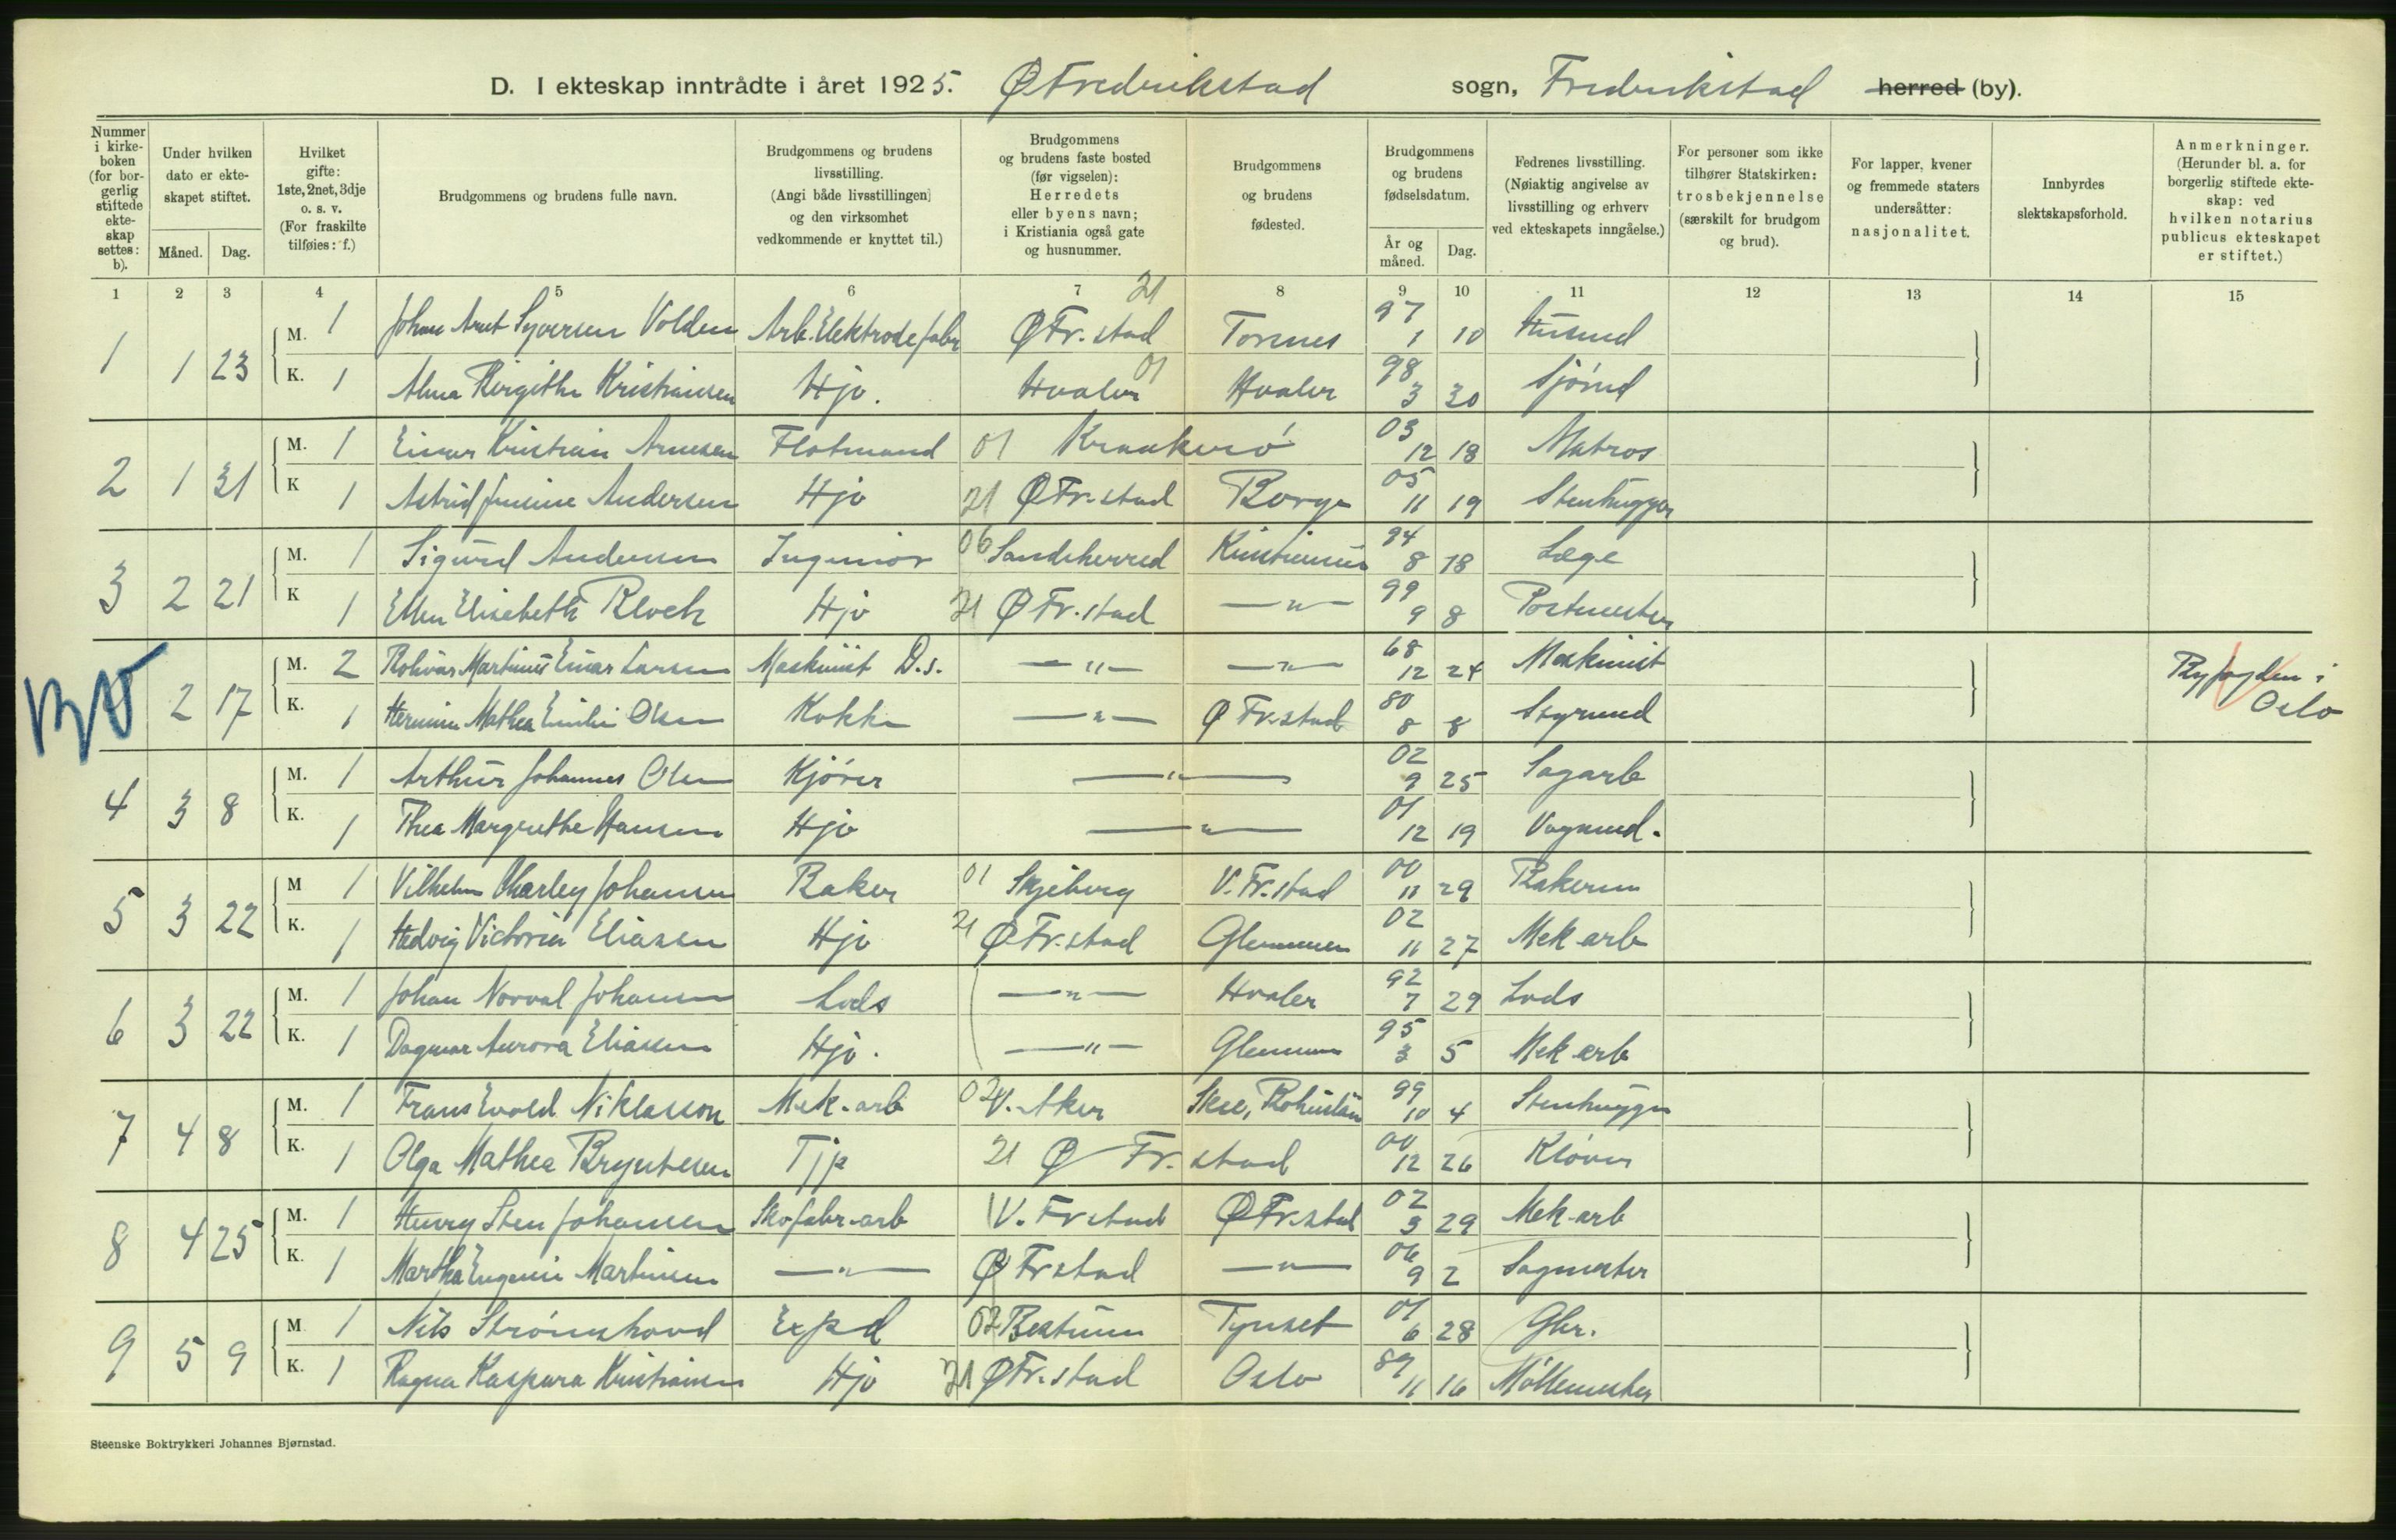 D. I ekteskap inntrådte i året 1925. Ø Fredrikstad sogn, Fredrikstad herred (by).
Nummer i kirkeboken (for borgerlig stiftede ekteskap settes: b).
Under hvilken dato er ekteskapet stiftet.
Måned. Dag.
Hvilket gifte: 1ste, 2net, 3dje o. s. v. (For fraskilte tilføies: f.)
Brudgommens og brudens fulle navn.
Brudgommens og brudens livsstilling. (Angi både livsstillingen og den virksomhet vedkommende er knyttet til.)
Brudgommens og brudens faste bosted (før vigselen): Herredets eller byens navn; i Kristiania også gate og husnummer.
Brudgommens og brudens fødested.
Brudgommens og brudens fødselsdatum.
År og måned. Dag.
Fedrenes livsstilling. (Nøiaktig angivelse av livsstilling og erhverv ved ekteskapets inngåelse.)
For personer som ikke tilhører Statskirken: trosbekjennelse (særskilt for brudgom og brud).
For lapper, kvener og fremmede staters undersåtter: nasjonalitet.
Innbyrdes slektskapsforhold.
Anmerkninger. (Herunder bl. a. for borgerlig stiftede ekteskap: ved hvilken notarius publicus ekteskapet er stiftet.)
1 2 3 4 5 6 7 8 9 10 11 12 13 14 15
1 1 23 M. 1 Johan Arnt Syversen Volden Arb. Elektrodefabr 21 Ø Fr.stad Torsnes 97 1 10 Husmd
K. 1 Alma Birgithe Kristiansen Hjv. 01 Hvaler Hvaler 98 3 30 Sjømd
2 1 31 M. 1 Einar Kristian Arnesen Flotmand 01 Kraakerø 03 12 18 Matros
K 1 Astrid Jensine Andersen Hjv 21 Ø Fr.stad Borge 05 11 19 Stenhugger
3 2 21 M. 1 Sigurd Andersen Ingeniør 06 Sandeherred Kristiania 94 8 18 Læge
K 1 Ellen Elisabeth Bloch Hjv 21 Ø Fr.stad —"— 99 9 8 Postmester
BV 2 17 M. 2 Martinus Einar Larsen Maskinist D.s. —"— —"— 68 12 24 Maskinist Byfogden i Oslo
K. 1 Hermine Mathea Emilie Olsen Kokke —"— Ø Fr.stad 80 8 8 Styrmd
4 3 8 M. 1 Arthur Johannes Olsen Kjører —"— 02 9 25 Sagarb
K. 1 Thea Margrethe Hansen Hjv —"— 01 12 19 Vognmd.
5 3 22 M 1 Vilhelm Charley Johansen Baker 01 Skjeberg V. Fr.stad 00 11 29 Bakerm
K. 1 Hedvig Victoria Eliasen Hjv 21 Ø Fr.stad Glemmen 02 11 27 Mek arb
6 3 22 M. 1 Johan Norval Johansen Lods —"— Hvaler 92 7 29 Lods
K. 1 Dagmar Aurora Eliasen Hjv. —"— Glemmen 95 3 5 Mek arb
7 4 8 M. 1 Frans Evald Niklasson Mek.arb 02 V. Aker Skee, Bohuslän 99 10 4 Stenhugger
K. 1 Olga Mathea Bryntesen Tjp 21 Ø Fr.stad 00 12 26 Kløver
8 4 25 M. 1 Henry Sten Johansen Skofabr-arb V. Frstad Ø Fr.stad 02 3 29 Mek-arb
K. 1 Martha Eugenie Martinsen —"— Ø Frstad —"— 06 9 2 Sagmester
9 5 9 M 1 Nils Strømshovd Exped 02 Bestum Tynset 01 6 28 Gbr.
K. 1 Ragna Kaspara Kristiansen Hjv 21 Ø Fr.stad Oslo 89 11 16 Møllemester
Steenske Boktrykkeri Johannes Bjørnstad.